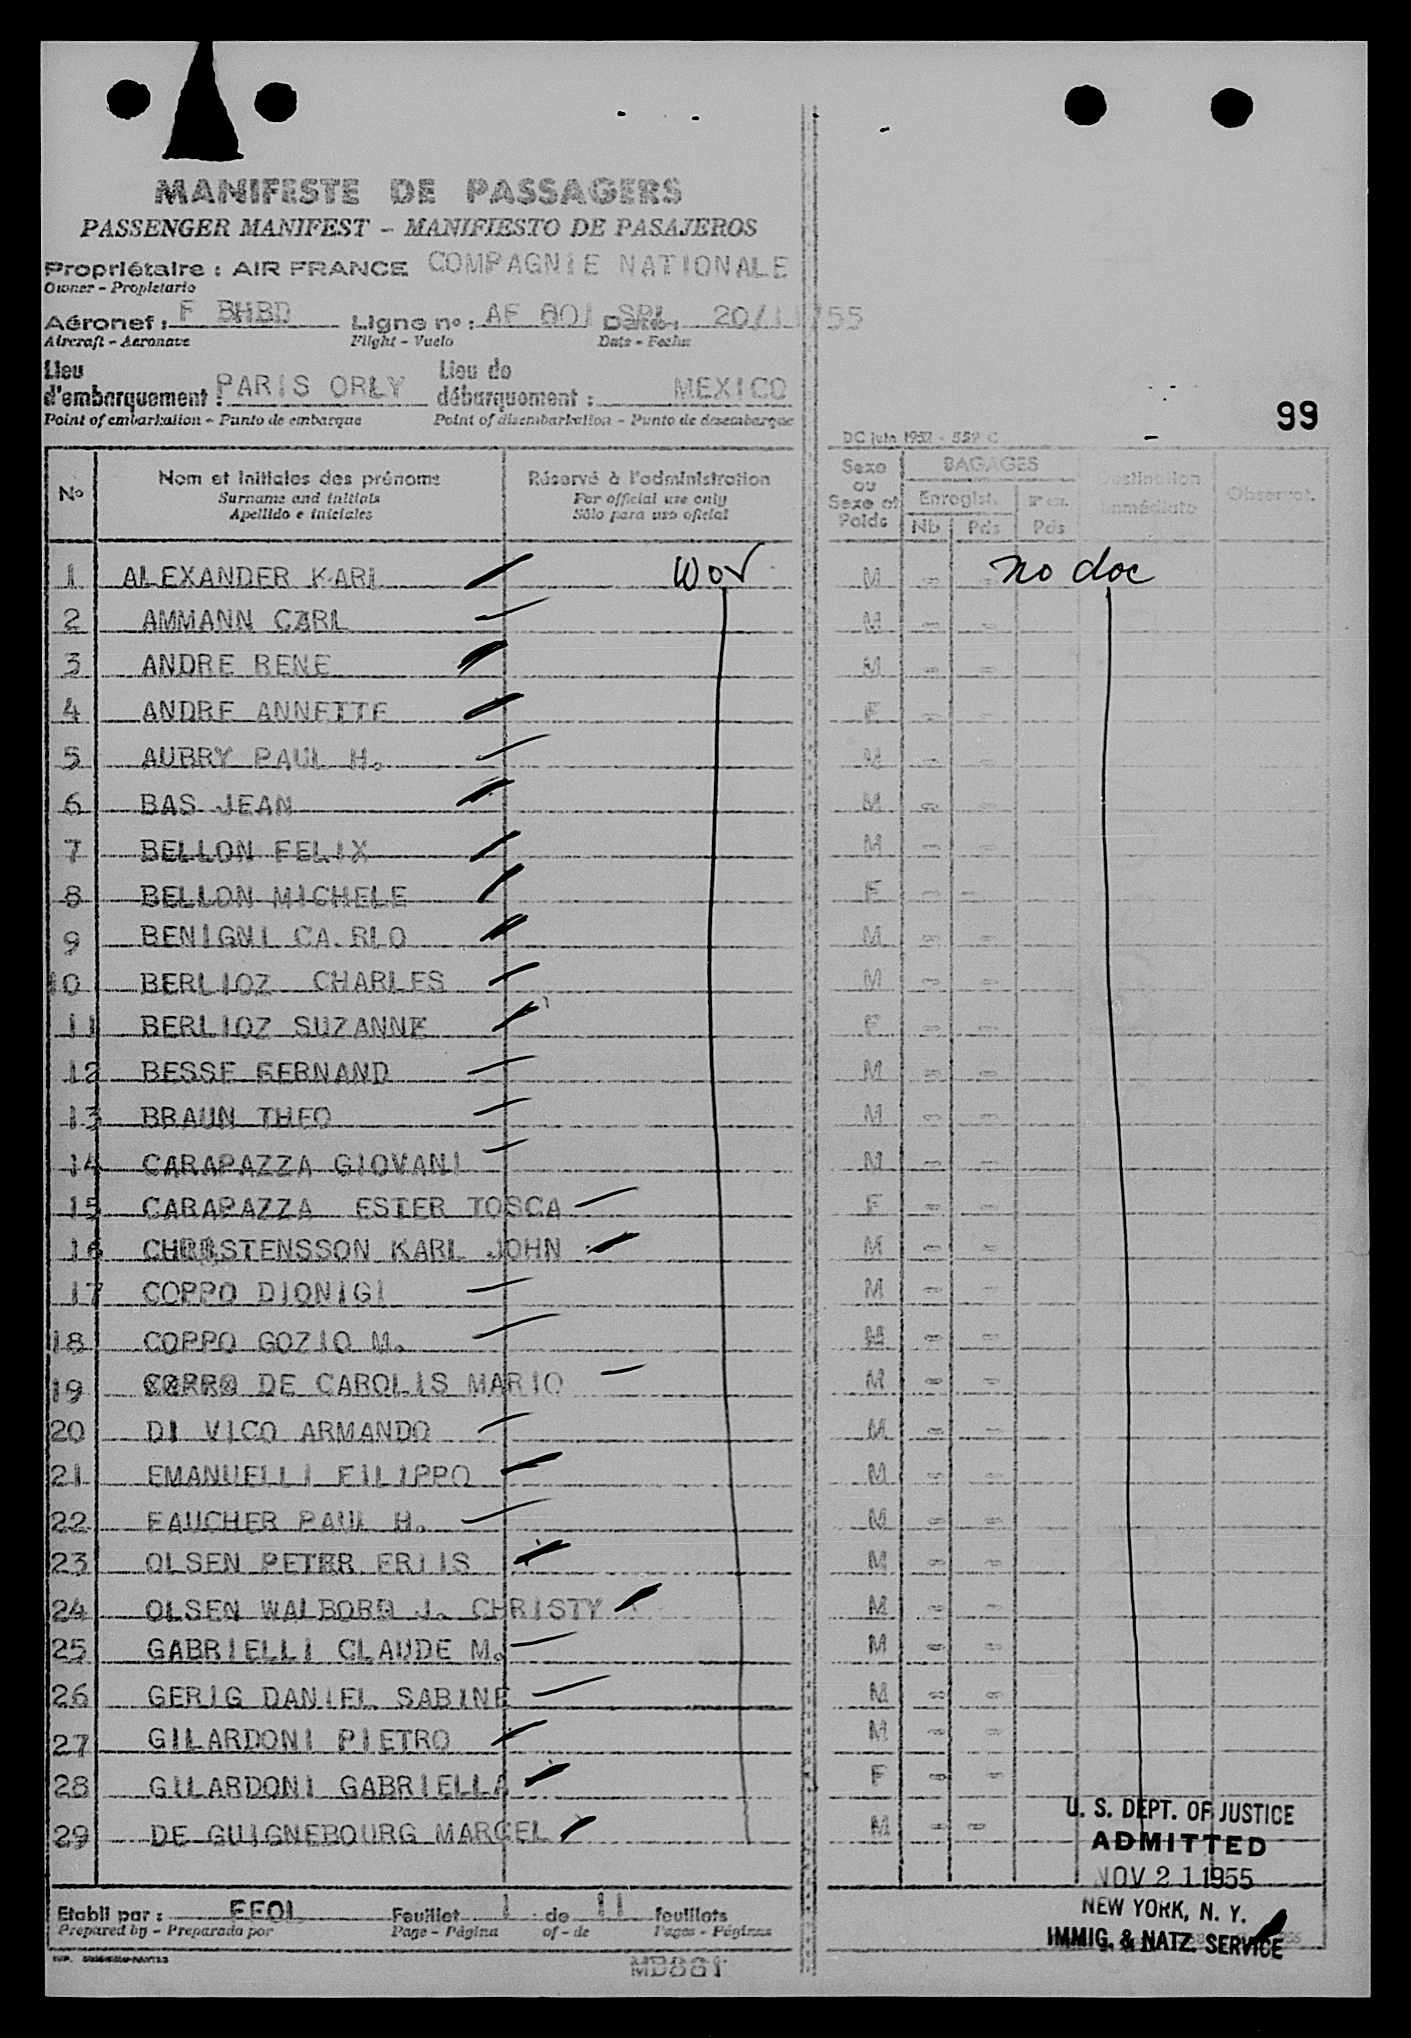 MANIFESTE DE PASSAGERS
PASSENGER MANIFEST - MANIFIESTO DE PASAJEROS
Propriétaire : AIR FRANCE COMPAGNIE NATIONALE
Owner - Propietario
Aéronef : F BHBD Ligne no : AF 801 SPL Date : 20/11/55
Aircraft - Aeronave Flight - Vuelo Date - Fecha
Lieu d'embarquement : PARIS ORLY Lieu de débarquement : MEXICO
Point of embarkation - Punto de embarque Point of disembarkation - Punto de desembarque
99
DC juin 1952 -
No Nom et initiales des prénoms Réservé à l'administration Sexe ou Sexe et Poids BAGAGES Destination immédiate Observat.
Surname and initials For official use only Enregist.
Apellido e iniciales Sólo para uso oficial Nb Pds Pds
1 ALEXANDER KARL wov M - - no doc
2 AMMANN CARL M - -
3 ANDRE RENE M - -
4 ANDRE ANNETTE F - -
5 AUBRY PAUL H. M - -
6 BAS JEAN M - -
7 BELLON FELIX M - -
8 BELLON MICHELE F - -
9 BENIGNI CA.RLO M - -
10 BERLIOZ CHARLES M - -
11 BERLIOZ SUZANNE F - -
12 BESSE FERNAND M - -
13 BRAUN THEO M - -
14 CARAPAZZA GIOVANI M - -
15 CARAPAZZA ESTER TOSCA F - -
16 CHRISTENSSON KARL JOHN M - -
17 COPPO DIONIGI M - -
18 COPPO GOZIO M. M - -
19 DE CAROLIS MARIO M - -
20 DI VICO ARMANDO M - -
21 EMANUELLI FILIPPO M - -
22 FAUCHER PAUL H. M - -
23 OLSEN PETER FRIIS M - -
24 OLSEN WALBORG J. CHRISTY M - -
25 GABRIELLI CLAUDE M. M - -
26 GERIG DANIEL SABINE M - -
27 GILARDONI PIETRO M - -
28 GILARDONI GABRIELLA F - -
29 DE GUIGNEBOURG MARCEL M - -
U. S. DEPT. OF JUSTICE
ADMITTED
NOV 21 1955
NEW YORK, N. Y.
IMMIG. & NATZ. SERVICE
Etabli par : EFOL Feuillet 1 de 11 feuillets
Prepared by - Preparado por Page - Página of - de Pages - Páginas